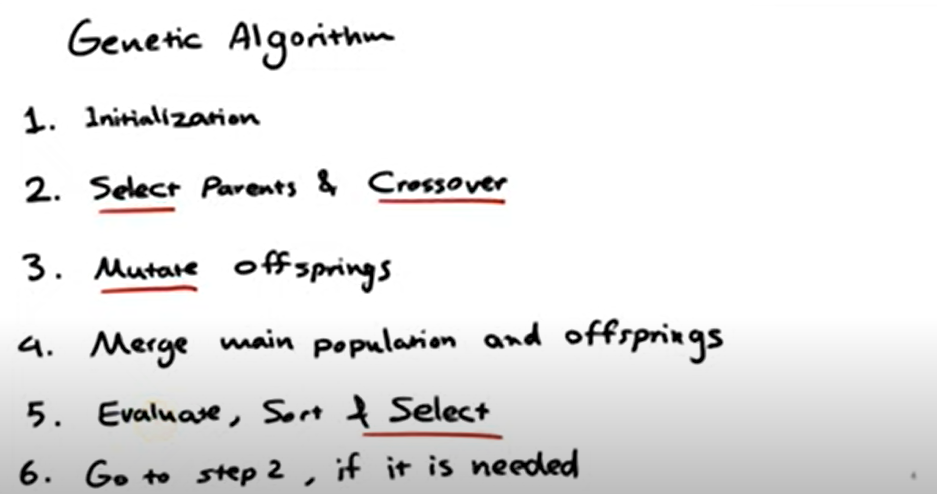 Genetic Algorithm
1. Initialization
2. Select Parents & Crossover
3. Mutate offsprings
4. Merge main population and offsprings
5. Evaluate, Sort & Select
6. Go to step 2, if it is needed